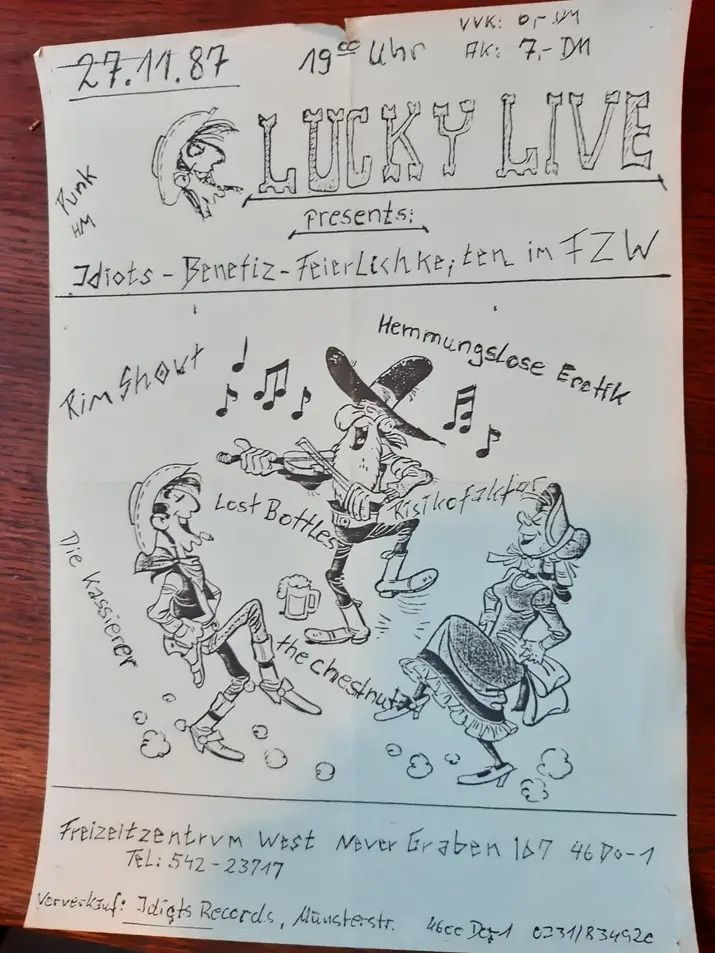 27.11.87
19⁰⁰ Uhr
VVK:
AK: 7,- DM
LUCKY LIVE
Punk
HM
presents:
Idiots - Benefiz - Feierlichkeiten im FZW
Rim Shout
Hemmungslose Erotik
Lost Bottles
Risikofaktor
Die Kassierer
the chestnutz
Freizeitzentrum West Neuer Graben 167 46 Do-1
TEL: 542-23717
Vorverkauf: Idiots Records, Münsterstr. 4600 Do-1 0231/834920